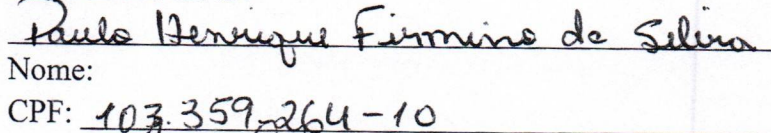 Paulo Henrique Firmino da Silva
Nome:
CPF: 103.359.264-10